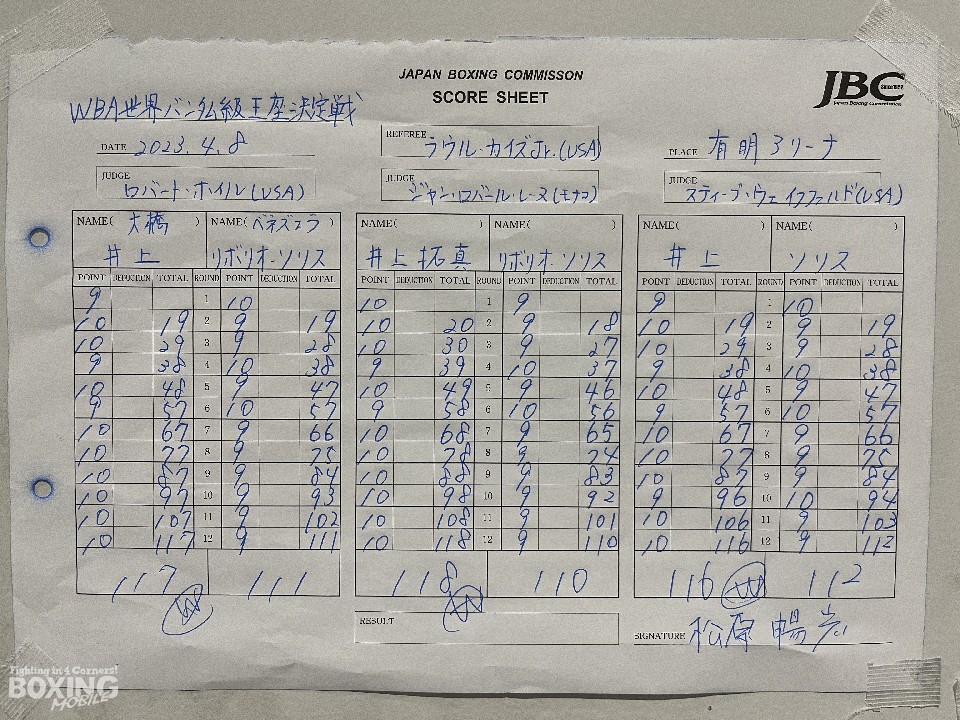 JAPAN BOXING COMMISSON
SCORE SHEET
JBC
SINCE 1952
Japan Boxing Commission
WBA世界バンタム級王座決定戦
DATE 2023.4.8
REFEREE ラウル・カイズJr.(USA)
PLACE 有明アリーナ
JUDGE ロバート・ホイル(USA)
JUDGE ジャン・ロバール・レーヌ(モナコ)
JUDGE スティーブ・ウェイスフィルド(USA)
NAME( 大橋 ) NAME( ベネズエラ ) NAME( ) NAME( ) NAME( ) NAME( )
井上 リボリオ・ソリス 井上拓真 リボリオ・ソリス 井上 ソリス
POINT DEDUCTION TOTAL ROUND POINT DEDUCTION TOTAL POINT DEDUCTION TOTAL ROUND POINT DEDUCTION TOTAL POINT DEDUCTION TOTAL ROUND POINT DEDUCTION TOTAL
9 1 10 10 1 9 9 1 10
10 19 2 9 19 10 20 2 9 18 10 19 2 9 19
10 29 3 9 28 10 30 3 9 27 10 29 3 9 28
9 38 4 10 38 9 39 4 10 37 9 38 4 10 38
10 48 5 9 47 10 49 5 9 46 10 48 5 9 47
9 57 6 10 57 9 58 6 10 56 9 57 6 10 57
10 67 7 9 66 10 68 7 9 65 10 67 7 9 66
10 77 8 9 75 10 78 8 9 74 10 77 8 9 75
10 87 9 9 84 10 88 9 9 83 10 87 9 9 84
10 97 10 9 93 10 98 10 9 92 9 96 10 10 94
10 107 11 9 102 10 108 11 9 101 10 106 11 9 103
10 117 12 9 111 10 118 12 9 110 10 116 12 9 112
117 111 118 110 116 112
RESULT
SIGNATURE 松原 暢
Fighting in 4 Corners!
BOXING
MOBILE